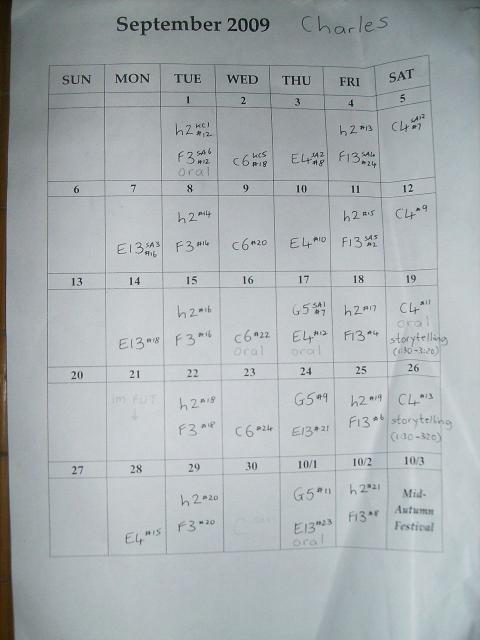 September 2009 Charles
SUN MON TUE WED THU FRI SAT
1 2 3 4 5
h2 KC1 #12 h2 #13 C4 SA12 #7
F3 SA6 #12 C6 KC5 #18 E4 SA2 #8 F13 SA4 #24
oral
6 7 8 9 10 11 12
h2 #14 h2 #15 C4 #9
E13 SA3 #16 F3 #14 C6 #20 E4 #10 F13 SA5 #2
13 14 15 16 17 18 19
h2 #16 G5 SA1 #7 h2 #17 C4 #11
oral
E13 #18 F3 #16 C6 #22 E4 #12 F13 #4 storytelling
oral oral (1:30-3:20)
20 21 22 23 24 25 26
im FUT h2 #18 G5 #9 h2 #19 C4 #13
F3 #18 C6 #24 E13 #21 F13 #6 storytelling
(1:30-320)
27 28 29 30 10/1 10/2 10/3
h2 #20 G5 #11 h2 #21 Mid-
Autumn
E4 #15 F3 #20 E13 #23 F13 #8 Festival
oral